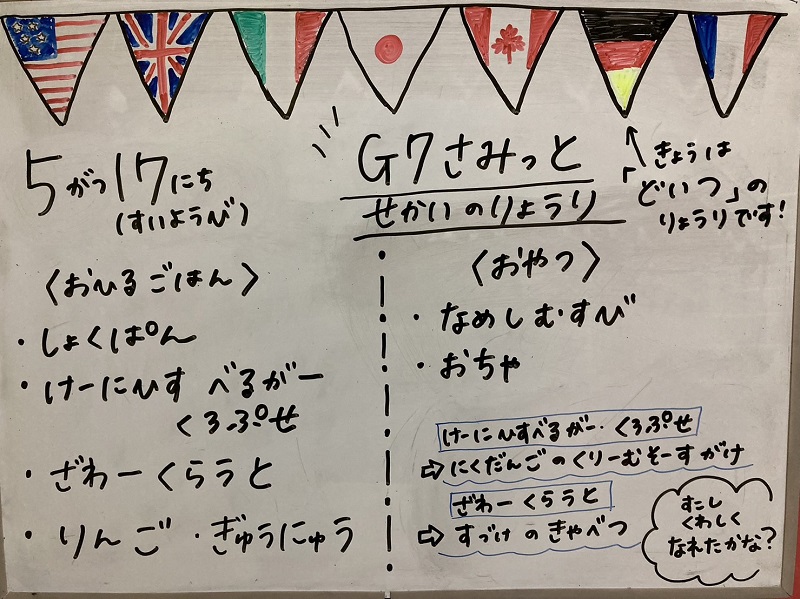 5がつ17にち
(すいようび)
G7さみっと
せかいのりょうり
きょうは
「どいつ」の
りょうりです!
〈おひるごはん〉
・しょくぱん
・けーにひす べるがー
くろぷせ
・ざわーくらうと
・りんご ・ぎゅうにゅう
〈おやつ〉
・なめしむすび
・おちゃ
けーにひすべるがー・くろぷせ
⇨にくだんごのくりーむそーすがけ
ざわーくらうと
⇨すづけのきゃべつ
すこし
くわしく
なれたかな?